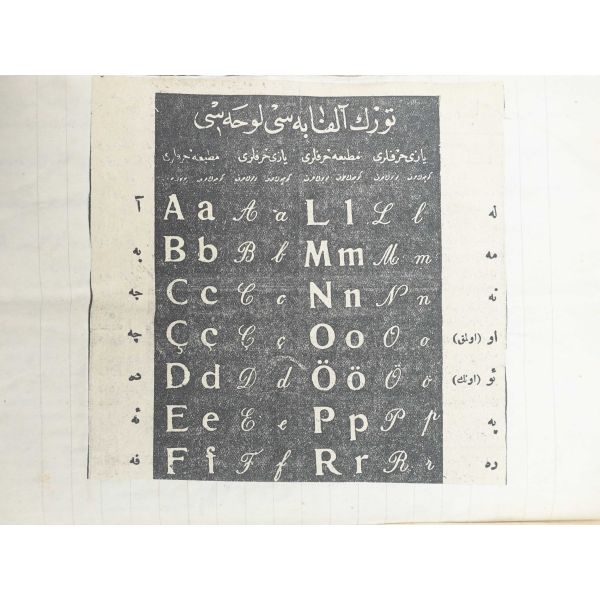 تورك آلفابه سی لوحه سی
یازی حرفلری مطبعه حرفلری یازی حرفلری مطبعه حرفلری
آ A a A a L l L l له
به B b B b M m M m مه
جه C c C c N n N n نه
چه Ç ç Ç ç O o O o او (اولمق)
ده D d D d Ö ö Ö ö ئو (اونك)
ئه E e E e P p P p په
فه F f F f R r R r ره